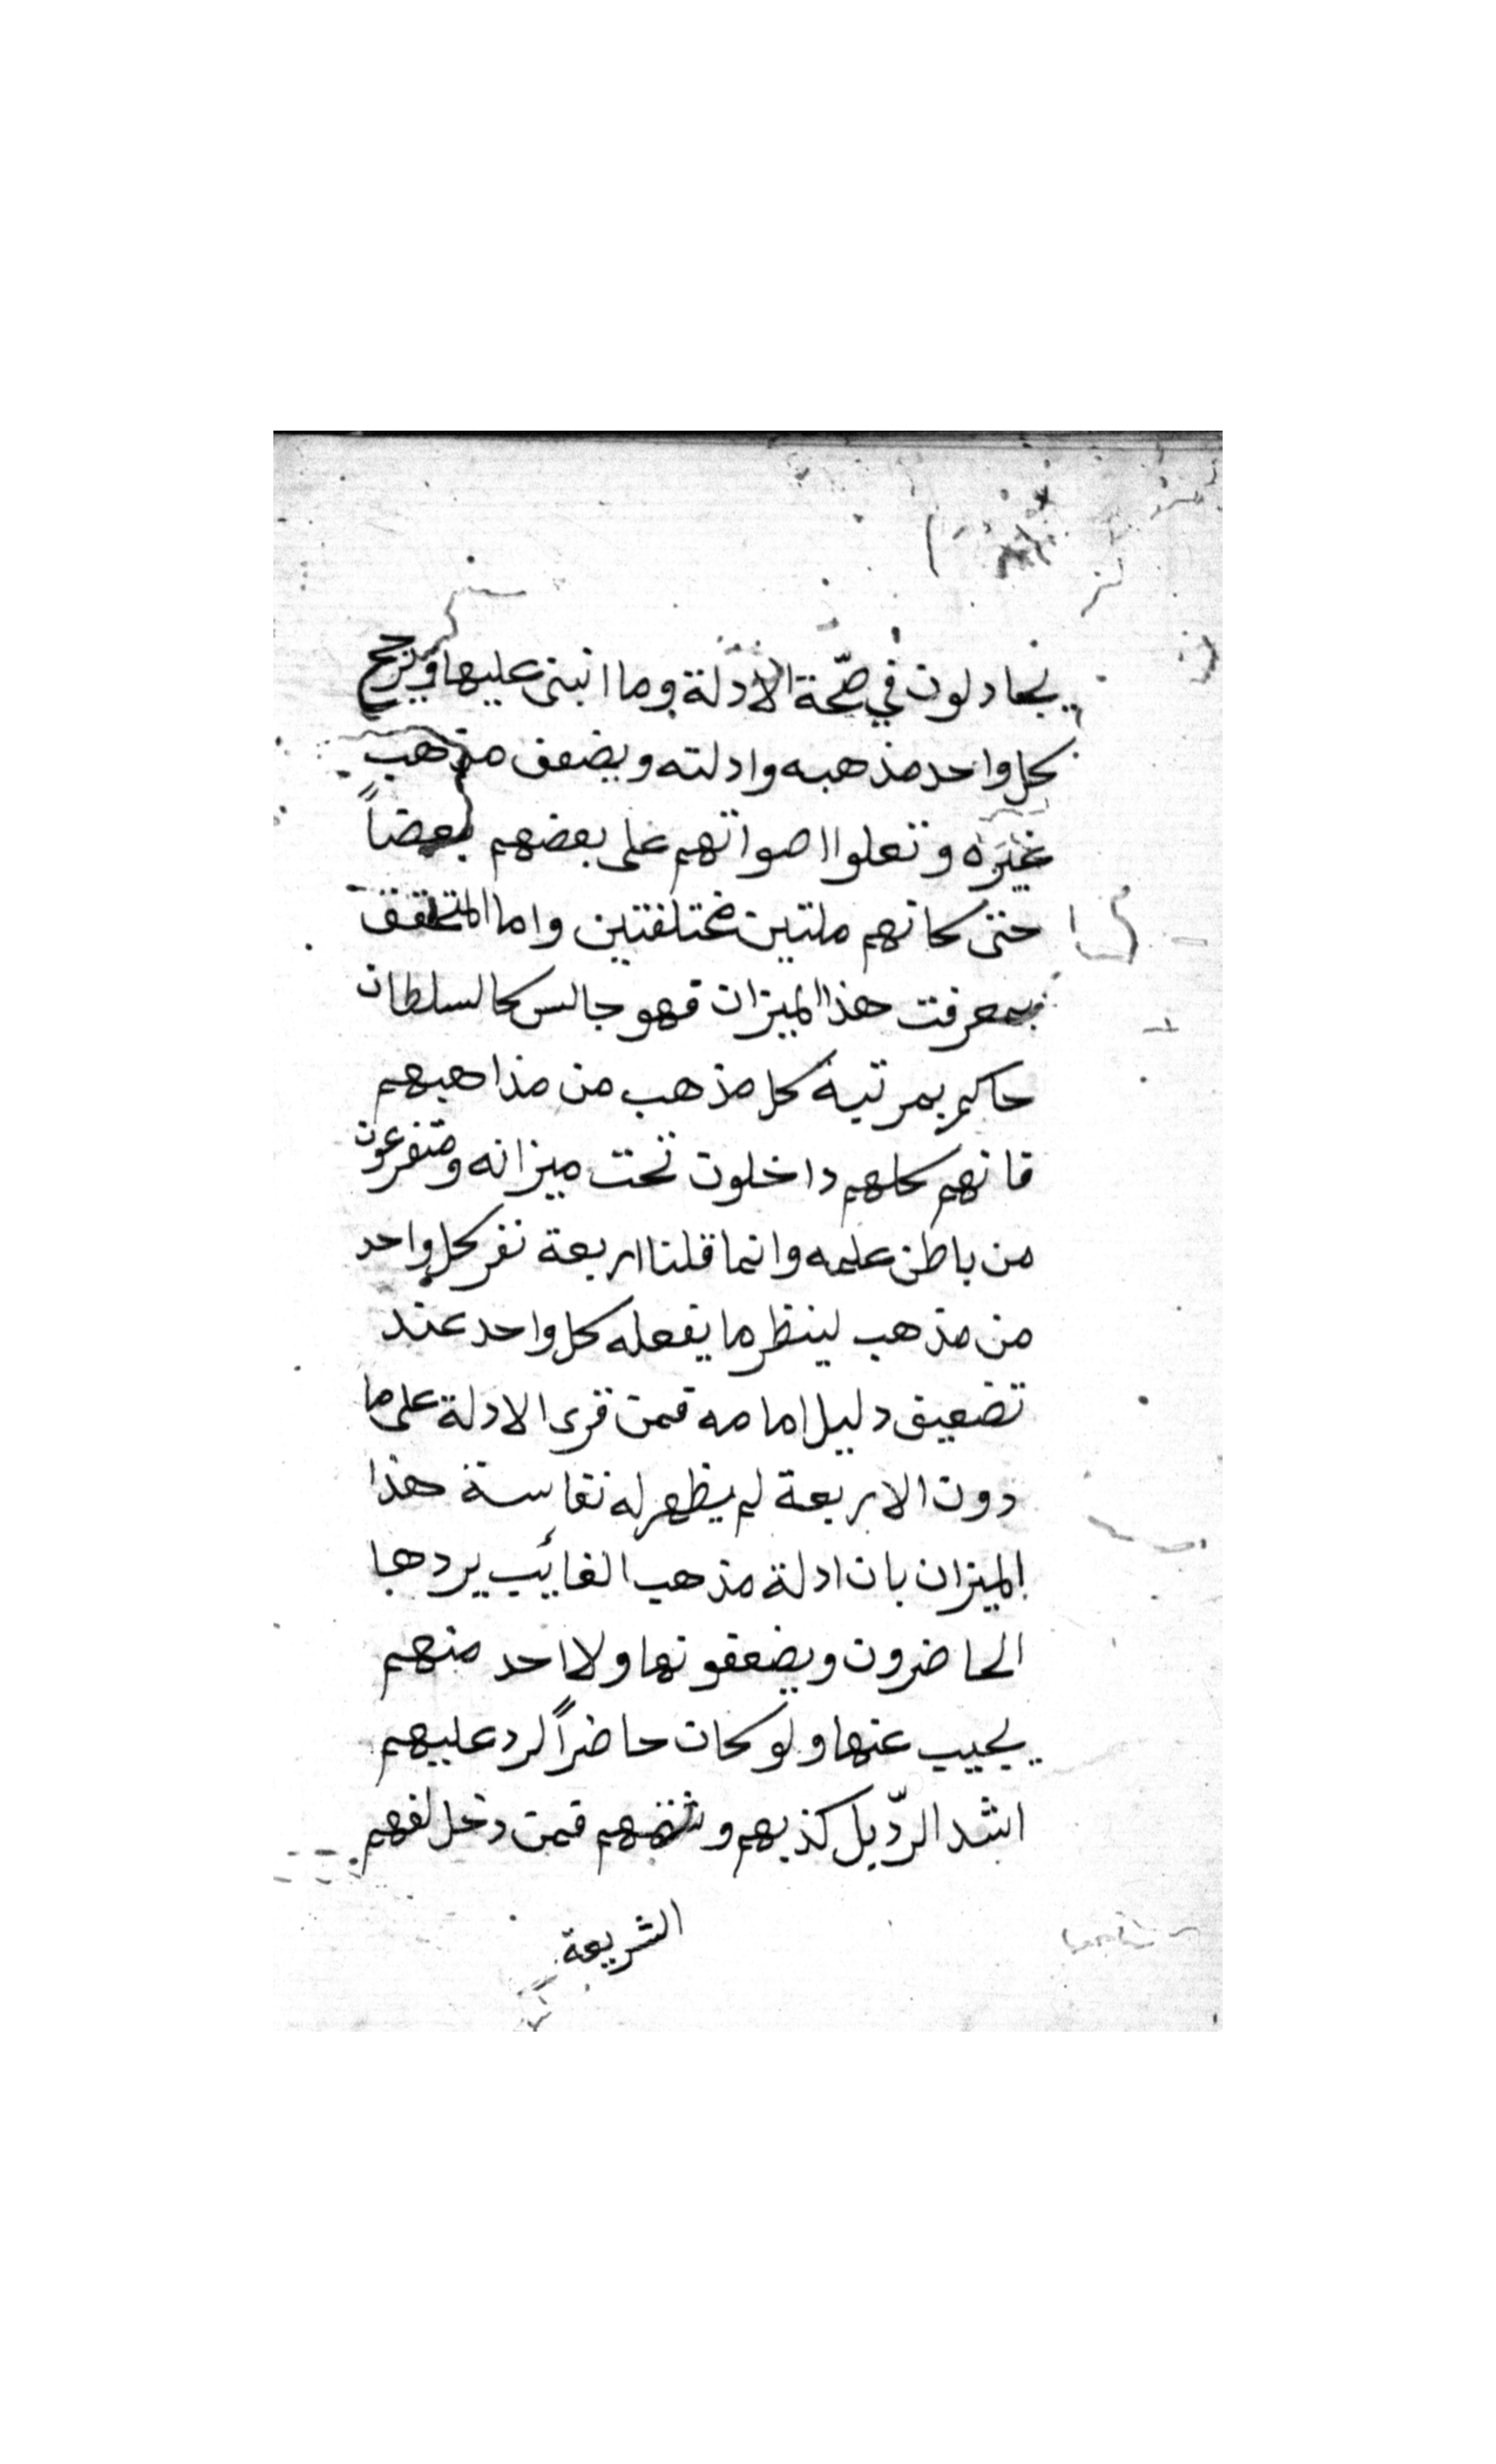 يجادلون في صحّة الادلة وما انبنى عليها ويرجح
كل واحد مذهبه وادلته ويضعف مذهب
غيره وتعلوا اصواتهم على بعضهم بعضاً
حتى كانهم ملتين مختلفتين واما المتحقق
بمعرفت هذا الميزان فهو جالس كالسلطان
حاكم بمرتبة كل مذهب من مذاهبهم
فانهم كلهم داخلون تحت ميزانه ومتفرعون
من باطن علمه وانما قلنا اربعة نفر كل واحد
من مذهب لينظر ما يفعله كل واحد عند
تضعيف دليل امامه فمن قرى الادلة على ما
دون الاربعة لم يظهر له نفاسة هذا
الميزان بان ادلة مذهب الغائب يردها
الحاضرون ويضعفونها ولا احد منهم
يجيب عنها ولو كان حاضراً لرد عليهم
اشد الردّ بل كذبهم وشتمهم فمن دخل لفهم
الشريعة